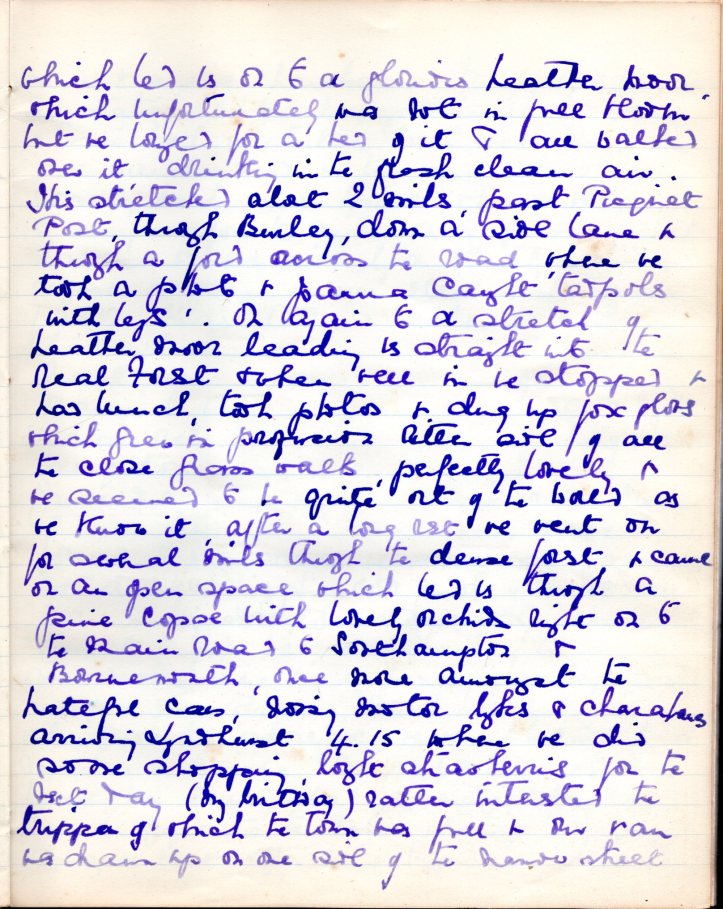 which led us on to a glorious heather moor
which unfortunately was not in full bloom
but we longed for a bed of it & all walked
over it drinking in the fresh clean air.
This stretched about 2 miles, past Picquet
Post, through Burley, down a side lane &
through a ford across the road where we
took a photo & caught tadpoles
with legs'. On again to a stretch of
heather moor leading us straight into the
real Forest & when well in we stopped &
had lunch, took photos & dug up fox gloves
which grew in profusion either side of all
the close grass walks, perfectly lovely &
we seemed to be quite out of the world as
we know it, after a long rest we went on
for several miles through the dense forest & came
on an open space which led us through a
pine copse with lovely orchids right on to
the main road to Southampton &
Bournemouth, once more amongst the
hateful cars, noisy motor bykes & charabancs
arriving Lyndhurst 4.15 where we did
some shopping, bought strawberries for the
next day (my birthday) rather interested the
trippers of which the town was full & our van
was drawn up on one side of the narrow street